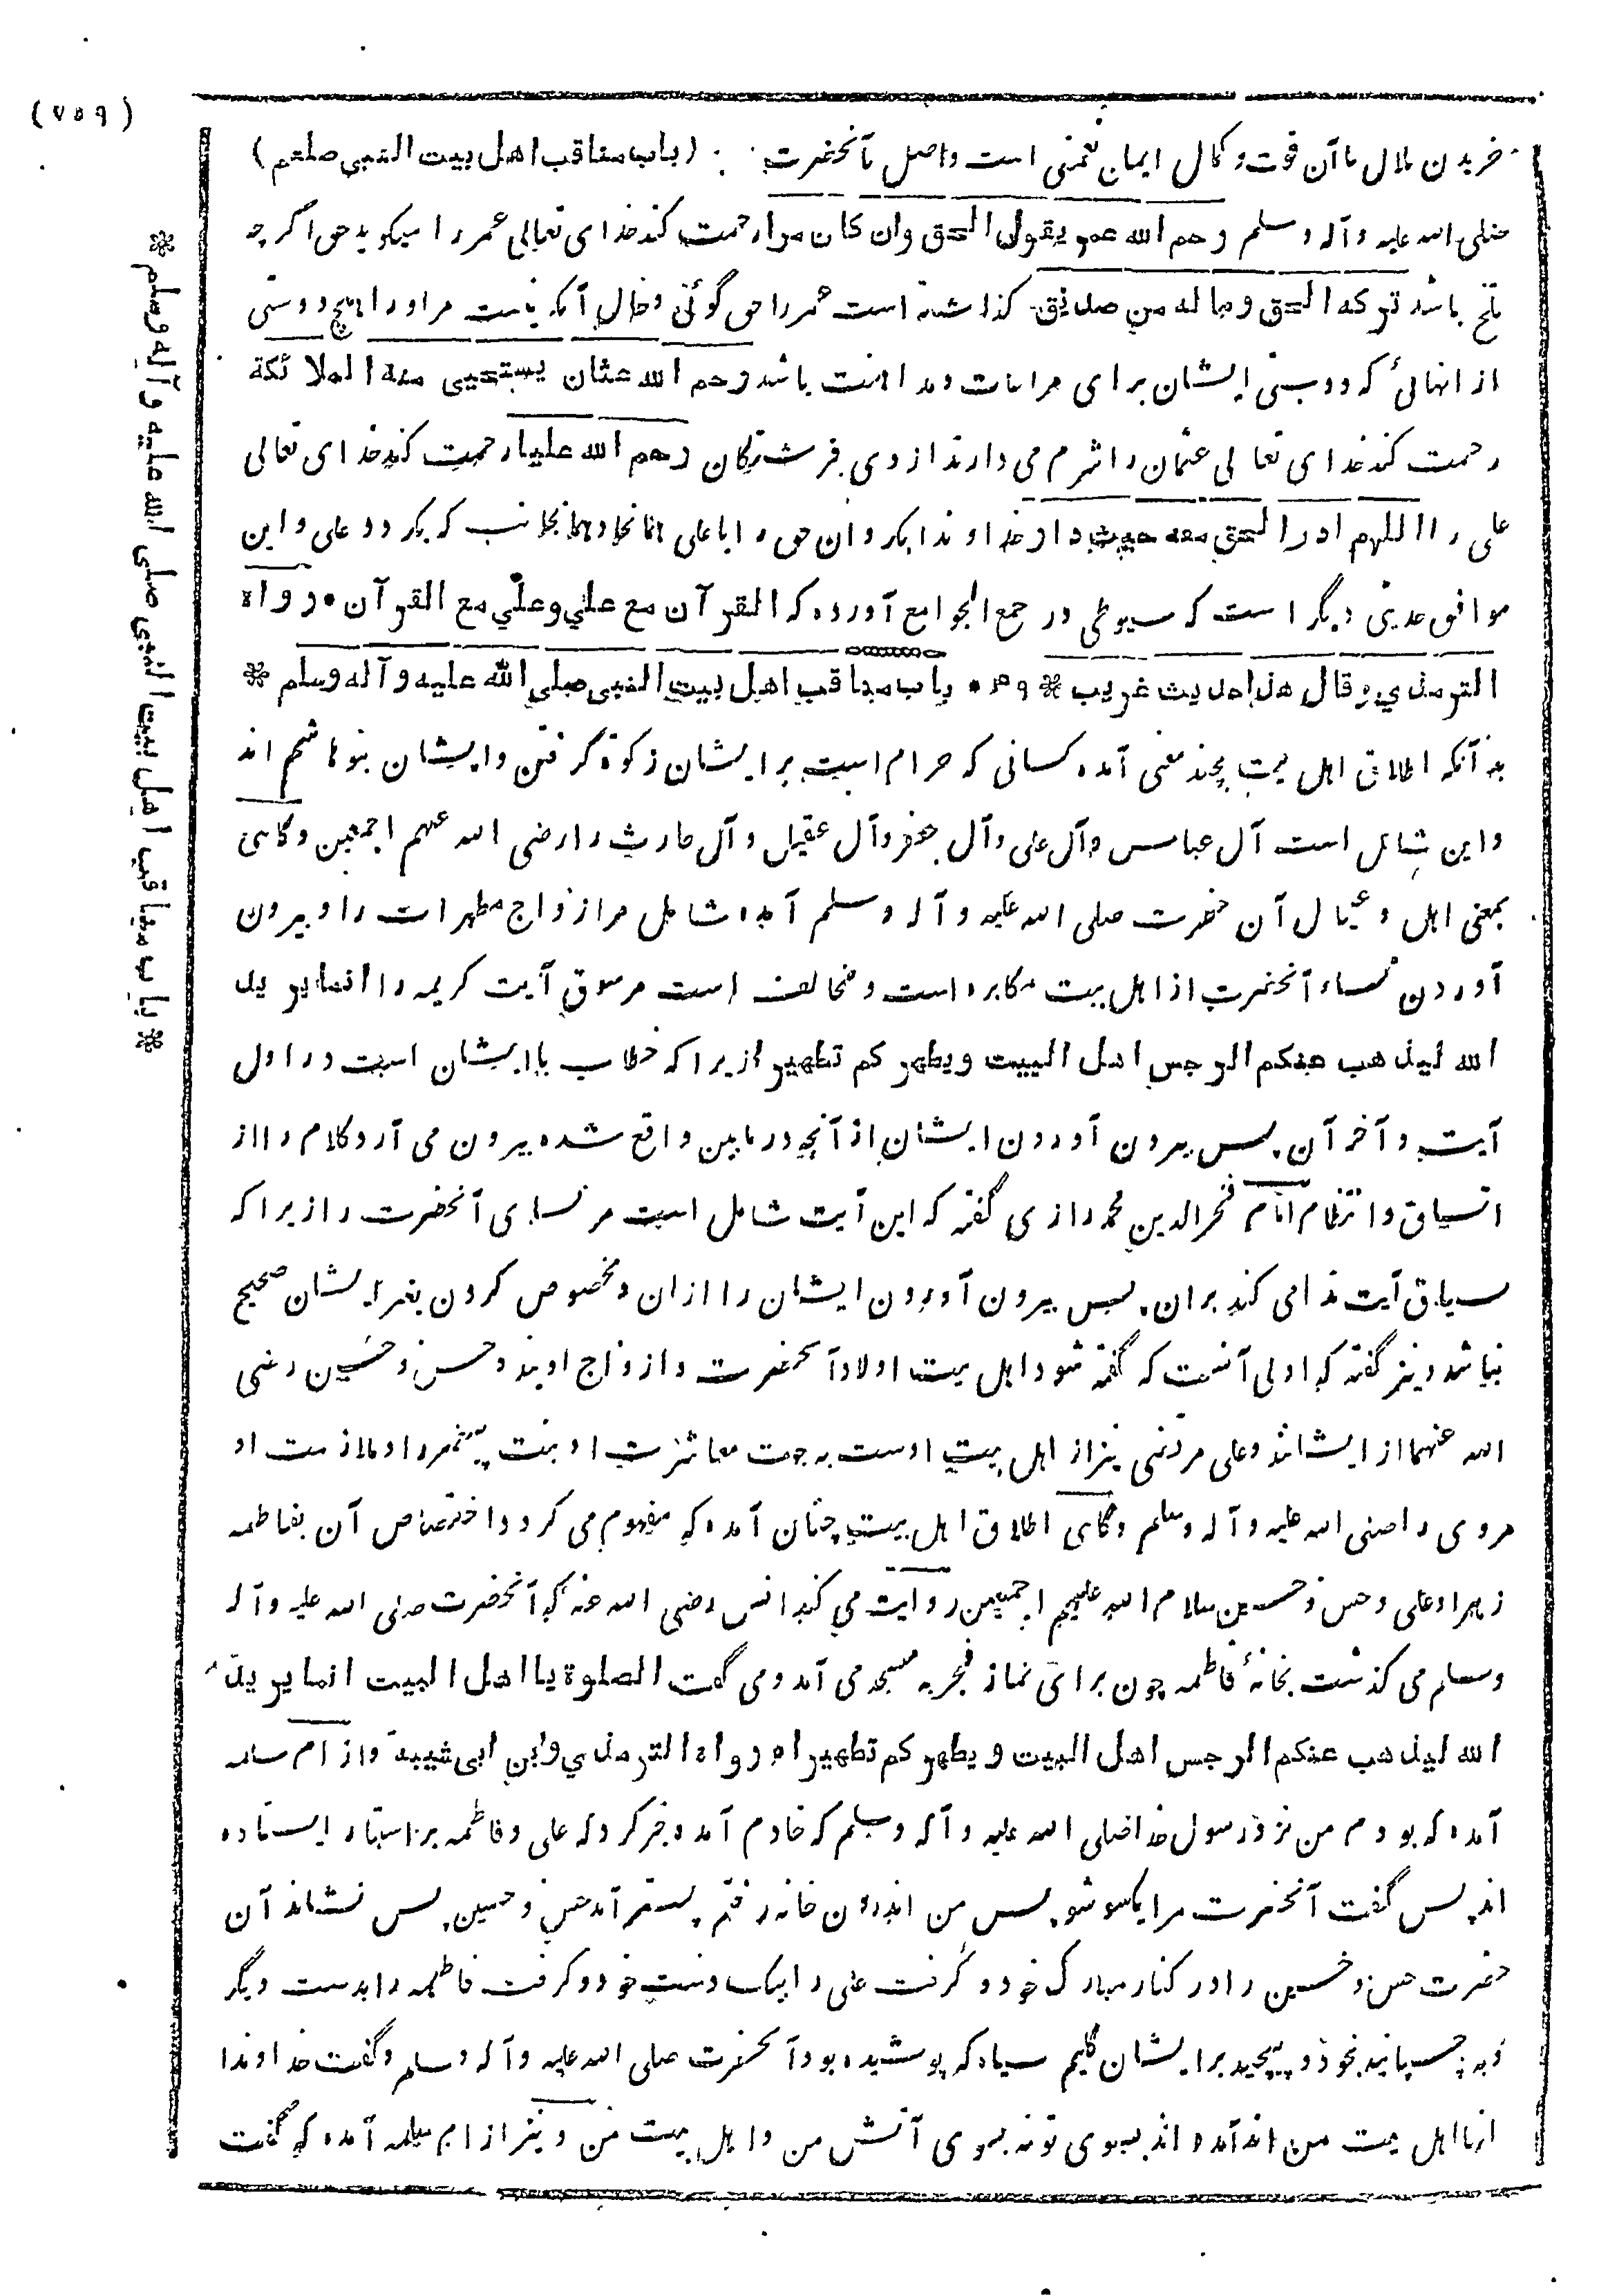 (۷۵۹)
خریدن بلال با آن قوت و کمال ایمان نعمتی است واصل بآنحضرت (باب مناقب اهل بیت النبی صلعم)
صلی الله علیه و آله و سلم رحم الله عمر یقول الحق وان کان مرا رحمت کند خدای تعالی عمر را میگوید حق اگرچه
تلخ باشد ترکه الحق وما له من صدیق گذاشته است عمر را حق گوئی و حال آنکه نیست مر اورا هیچ دوستی
از انهائی که دوستی ایشان برای مراعات و مداهنت باشد رحم الله عثمان یستحیی منه الملائکة
رحمت کند خدای تعالی عثمان را شرم می دارند از وی فرشتگان رحم الله علیا رحمت کند خدای تعالی
علی را اللهم ادر الحق معه حیث دار خداوندا بگردان حق را با علی همانجا و همانجانب که بگردد علی و این
موافق حدیثی دیگر است که سیوطی در جمع الجوامع آورده که القرآن مع علي وعلي مع القرآن ۰ رواه
الترمذي وقال هذا حدیث غریب ❊ ۴۹ ۰ باب مناقب اهل بیت النبی صلی الله علیه و آله وسلم ❊
بدانکه اطلاق اهل بیت بچند معنی آمده کسانی که حرام است بر ایشان زکوة گرفتن و ایشان بنو هاشم اند
و این شامل است آل عباس و آل علی و آل جعفر و آل عقیل و آل حارث را رضی الله عنهم اجمعین و گاهی
بمعنی اهل و عیال آن حضرت صلی الله علیه و آله و سلم آمده شامل مر ازواج مطهرات را و بیرون
آوردن نساء آنحضرت از اهل بیت مکابره است و مخالف است مر سوق آیت کریمه را انما یرید
الله لیذهب عنکم الرجس اهل البیت ویطهرکم تطهیرا زیرا که خطاب با ایشان است در اول
آیت و آخر آن پس بیرون آوردن ایشان از آنچه در ما بین واقع شده بیرون می آرد کلام را از
اتساق و انتظام امام فخر الدین محمد رازی گفته که این آیت شامل است مر نسای آنحضرت را زیرا که
سیاق آیت ندا می کند بران پس بیرون آوردن ایشان را ازان و مخصوص کردن بغیر ایشان صحیح
نباشد و نیز گفته که اولی آنست که گفته شود اهل بیت اولاد آنحضرت و ازواج اویند و حسن و حسین رضی
الله عنهما از ایشانند و علی مرتضی نیز از اهل بیت اوست به جهت معاشرت او بنت پیغمبر را و ملازمت او
مروی را صلی الله علیه و آله وسلم و گاهی اطلاق اهل بیت چنان آمده که مفهوم می گردد اختصاص آن بفاطمه
زهرا و علی و حسن و حسین سلام الله علیهم اجمعین روایت می کند انس رضی الله عنه که آنحضرت صلی الله علیه و آله
وسلم می گذشت بخانهٔ فاطمه چون برای نماز فجر به مسجد می آمد و می گفت الصلوة یا اهل البیت انما یرید
الله لیذهب عنکم الرجس اهل البیت و یطهرکم تطهیرا ۰ رواه الترمذي وابن ابی شیبة و از ام سلمه
آمده که بودم من نزد رسول خدا صلی الله علیه و آله وسلم که خادم آمده خبر کرد که علی و فاطمه بر استانه ایستاده
اند پس گفت آنحضرت مرا یکسو شو پس من اندرون خانه رفتم پستر آمد حسن و حسین پس نشاند آن
حضرت حسن و حسین را در کنار مبارک خود و گرفت علی را بیک دست خود و گرفت فاطمه را بدست دیگر
و به چسپانید بخود و پیچید بر ایشان گلیم سیاه که پوشیده بود آنحضرت صلی الله علیه و آله وسلم و گفت خداوندا
اینها اهل بیت من اند آمده اند بسوی تو نه بسوی آتش من و اهل بیت من و نیز از ام سلمه آمده که گفت
❊ باب مناقب اهل بیت النبی صلی الله علیه و آله وسلم ❊